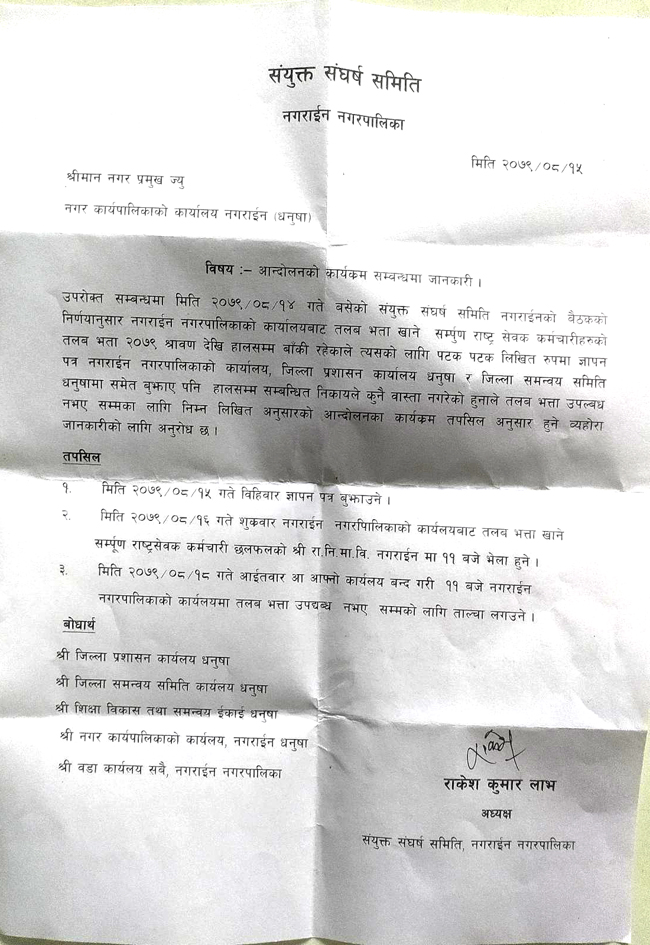 संयुक्त संघर्ष समिति
नगराईन नगरपालिका
मिति २०७९/०८/१५
श्रीमान नगर प्रमुख ज्यु
नगर कार्यपालिकाको कार्यालय नगराईन (धनुषा)
विषय :– आन्दोलनको कार्यक्रम सम्बन्धमा जानकारी ।
उपरोक्त सम्बन्धमा मिति २०७९/०८/१४ गते बसेको संयुक्त संघर्ष समिति नगराईनको वैठकको
निर्णयानुसार नगराईन नगरपालिकाको कार्यालयबाट तलब भता खाने सर्म्पुण राष्ट्र सेवक कर्मचारीहरुको
तलब भता २०७९ श्रावण देखि हालसम्म बाँकी रहेकाले त्यसको लागि पटक पटक लिखित रुपमा ज्ञापन
पत्र नगराईन नगरपालिकाको कार्यालय, जिल्ला प्रशासन कार्यालय धनुषा र जिल्ला समन्वय समिति
धनुषामा समेत बुझाए पनि हालसम्म सम्बन्धित निकायले कुनै वास्ता नगरेको हुनाले तलब भत्ता उपल्बध
नभए सम्मका लागि निम्न लिखित अनुसारको आन्दोलनका कार्यक्रम तपसिल अनुसार हुने व्यहोरा
जानकारीको लागि अनुरोध छ ।
तपसिल
१. मिति २०७९/०८/१५ गते विहिवार ज्ञापन पत्र बुझाउने ।
२. मिति २०७९/०८/१६ गते शुक्रवार नगराईन नगरपिालिकाको कार्यलयबाट तलब भत्ता खाने
सर्म्पूण राष्ट्रसेवक कर्मचारी छलफलको श्री रा.नि.मा.वि. नगराईन मा ११ बजे भेला हुने ।
३. मिति २०७९/०८/१८ गते आईतवार आ आफ्नो कार्यलय बन्द गरी ११ बजे नगराईन
नगरपालिकाको कार्यलयमा तलब भत्ता उपद्यब्ध नभए सम्मको लागि ताल्चा लगाउने ।
बोधार्थ
श्री जिल्ला प्रशासन कार्यलय धनुषा
श्री जिल्ला समन्वय समिति कार्यलय धनुषा
श्री शिक्षा विकास तथा समन्वय ईकाई धनुषा
श्री नगर कार्यपालिकाको कार्यलय, नगराईन धनुषा
श्री वडा कार्यलय सवै, नगराईन नगरपालिका
राकेश कुमार लाभ
अध्यक्ष
संयुक्त संघर्ष समिति, नगराईन नगरपालिका